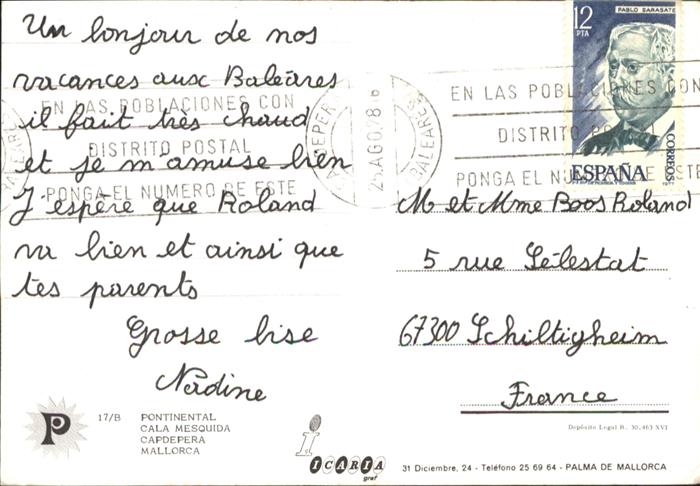 Un bonjour de nos
vacances aux Baléares
il fait très chaud
et je m'amuse bien
J'espère que Roland
va bien et ainsi que
tes parents
Grosse bise
Nadine
EN LAS POBLACIONES CON
DISTRITO POSTAL
PONGA EL NUMERO DE ESTE
25 AGO 78
BALEARES
EN LAS POBLACIONES CON
DISTRITO POSTAL
PONGA EL NUMERO DE ESTE
12 PTA
PABLO SARASATE
CORREOS
ESPAÑA
1977
M et Mme Boos Roland
5 rue Sélestat
67300 Schiltigheim
France
Depósito Legal B. 30.463 XVI
P
17/B PONTINENTAL
CALA MESQUIDA
CAPDEPERA
MALLORCA
i
ICARIA
graf
31 Diciembre, 24 - Teléfono 25 69 64 - PALMA DE MALLORCA